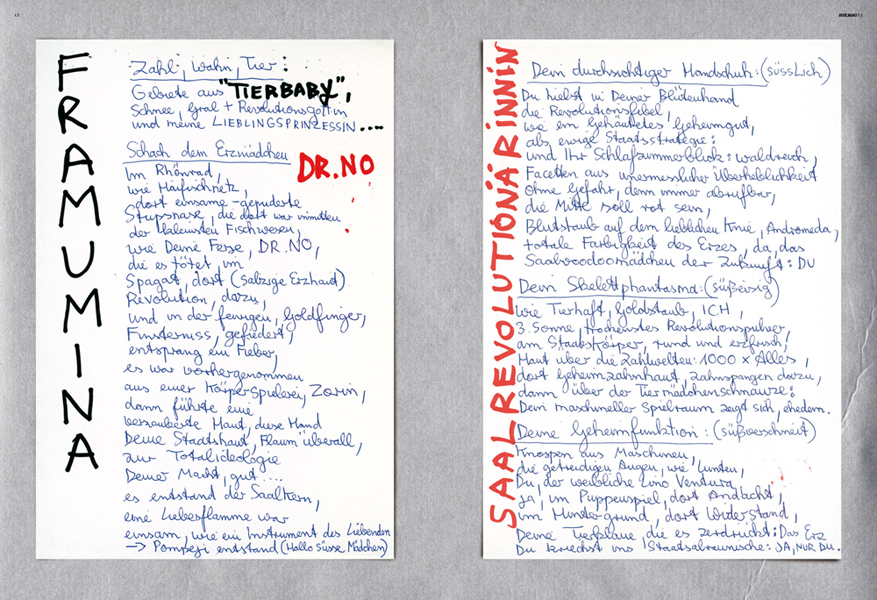 12
FRAMUMINA
Zahl, Wahn, Tier:
Gebiete aus "TIERBABY",
Schnee, Gral + Revolutionsgöttin
und meine LIEBLINGSPRINZESSIN....
Schach dem Erzmädchen
DR.NO
Im Rhönrad,
wie Haifischnetz,
dort einsame-gepuderte
Stupsnase, die dort war inmitten
der kleinsten Fischwesen,
wie Deine Ferse, DR.NO,
die es tötet im
Spagat, dort (salzige Erzhand)
Revolution, dazu,
und in der feurigen, Goldfinger,
Finsterniss, gefiedert,
entsprang ein Fieber,
es war vorhergenommen
aus einer Körperspielerei, Zorin,
dann führte eine
verzauberte Haut, diese Hand
Deine Stadtshaut, Flaum überall,
zur Totalideologie
Deiner Macht, gut....
es entstand der Saalkern,
eine Liebesflamme war
einsam, wie ein Instrument des Liebenden
→ Pompeji entstand (Hallo süsse Mädchen)
SAALREVOLUTIONÄRINNIN
Dein durchsichtiger Handschuh: (süssLich)
Du hieltst in Deiner Blütenhand
die Revolutionsfibel,
wie ein gehäutetes Geheimgut,
als ewige Staatsstrategie:
und Ihr Schlafzimmerblick: waldreich,
Facetten aus unermesslicher Überheblichkeit
Ohne Gefahr, denn immer abrufbar,
die Mitte soll rot sein,
Blutstaub auf dem lieblichen Knie, Andromeda,
totale Farbigkeit des Erzes, da, das
Saalvoodoomädchen der Zukunft: DU
Dein Skelettphantasma: (süßeisig)
wie Tierhaft, Goldstaub, ICH,
3. Sonne, trockenstes Revolutionspulver,
am Staatskörper, rund und erzfrisch,
Haut über die Zahlwelten: 1000 x Alles,
dort Geheimzahnhaut, Zahnspangen dazu,
dann über der Tiermädchenschnauze:
Dein maschineller Spielraum zeigt sich, ehedem.
Deine Geheimfunktion: (süßverschneit)
Knospen aus Maschinen,
die getreidigen Augen, wie Lunten,
Du, der weibliche Lino Ventura,
ja, im Puppenspiel, dort Andacht,
im Hintergrund, dort Widerstand,
Deine Tierpläne, die es zerdrückt: Das Erz
Du kriechst ins Staatsalraunische: JA, NUR DU.